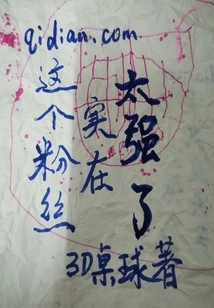 qidian.com
这个粉丝
实在
太强了
3D桌球著